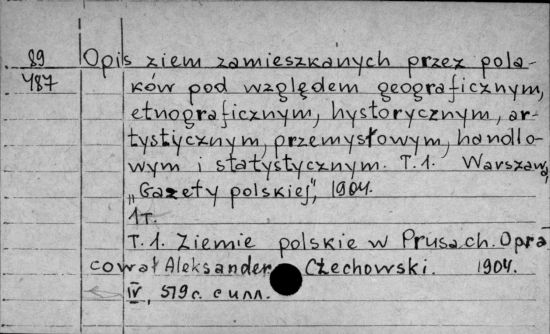 89
487
Opis ziem zamieszkanych przez pola-
ków pod względem geograficznym,
etnograficznym, hystorycznym, ar-
tystycznym, przemysłowym, handlo-
wym i statystycznym. T.1. Warszawa,
„Gazety polskiej”, 1904.
1т.
T.1. Ziemie polskie w Prusach. Opra
cował Aleksander Czechowski. 1904.
IV, 519 с. с илл.